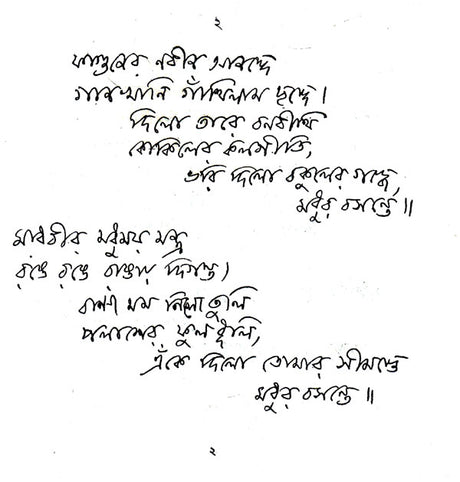 ২
ফাগুনের নবীন আনন্দে
গানখানি গাঁথিলাম ছন্দে।
দিলো তারে বনবীথি
কোকিলের কলগীতি,
ভরি দিলো বকুলের গন্ধে,
মধুর বসন্তে ॥
মাধবীর মধুময় মন্ত্র
রঙে রঙে রাঙায় দিগন্ত।
বাণী মম নিলো তুলি
পলাশের ফুল
এঁকে দিলো তোমার সীমন্তে
মধুর বসন্তে ॥
২